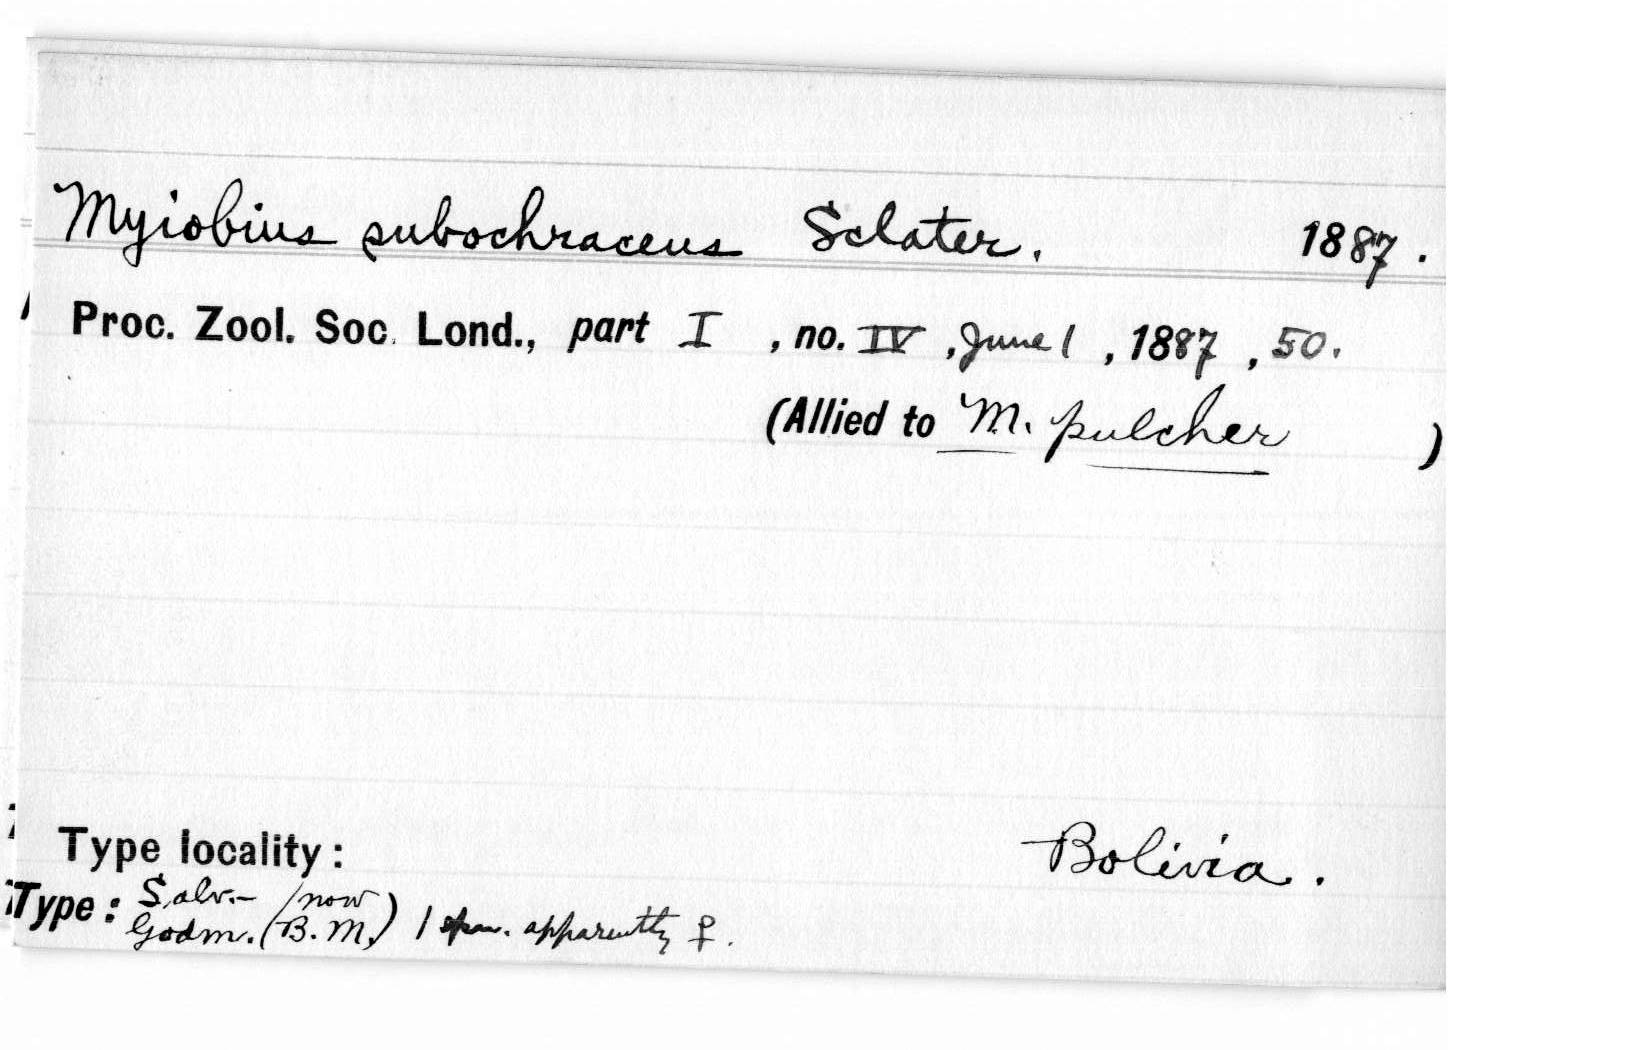 Myiobius subochraceus Sclater. 1887.
Proc. Zool. Soc. Lond., part I, no. IV, June 1, 1887, 50.
(Allied to M. pulcher)
Type locality: Bolivia.
Type: Salv.- Godm. (now B.M.) 1 spm. apparently ♀.